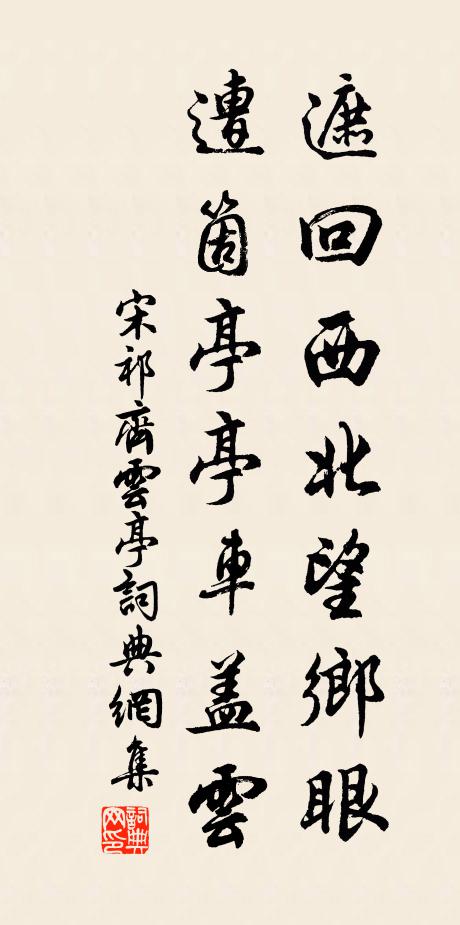 遮回西北望鄉眼
遭箇亭亭車盖雲
宋祁齊雲亭詞典網集
詞典网印